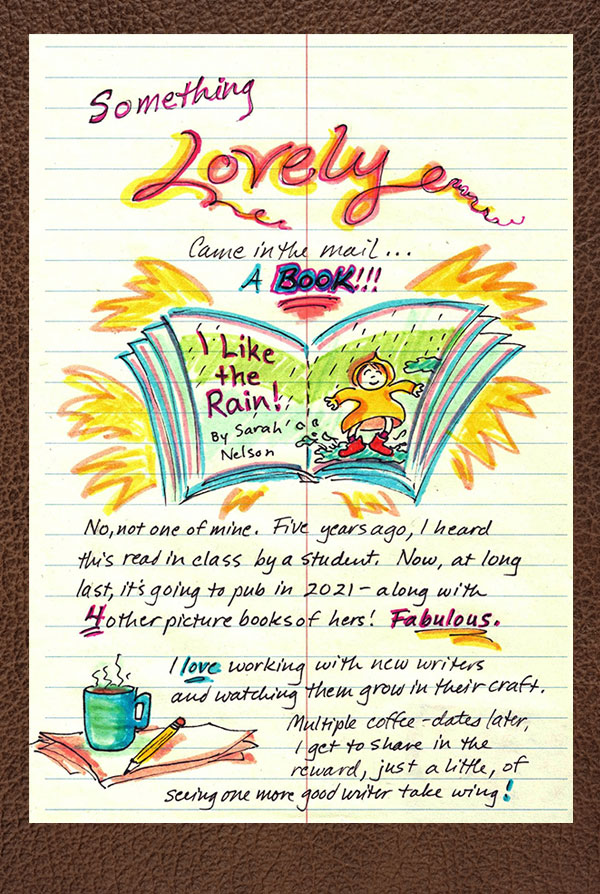 Something
Lovely
Came in the mail...
A BOOK!!!
I Like
the
Rain!
By Sarah
Nelson
No, not one of mine. Five years ago, I heard
this read in class by a student. Now, at long
last, it's going to pub in 2021 - along with
4 other picture books of hers! Fabulous.
I love working with new writers
and watching them grow in their craft.
Multiple coffee-dates later,
I get to share in the
reward, just a little, of
seeing one more good writer take wing!